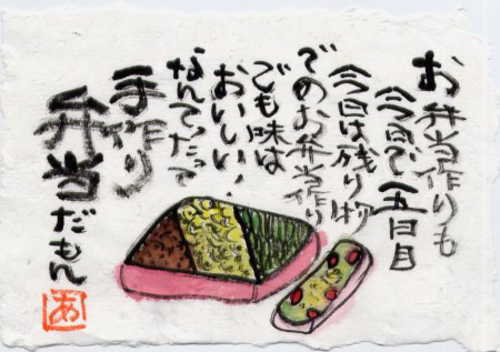 お弁当作りも
今日で五日目
今日は残り物
でのお弁当作り
でも味は
おいしい!
なんてったって
手作り
弁当だもん
あ